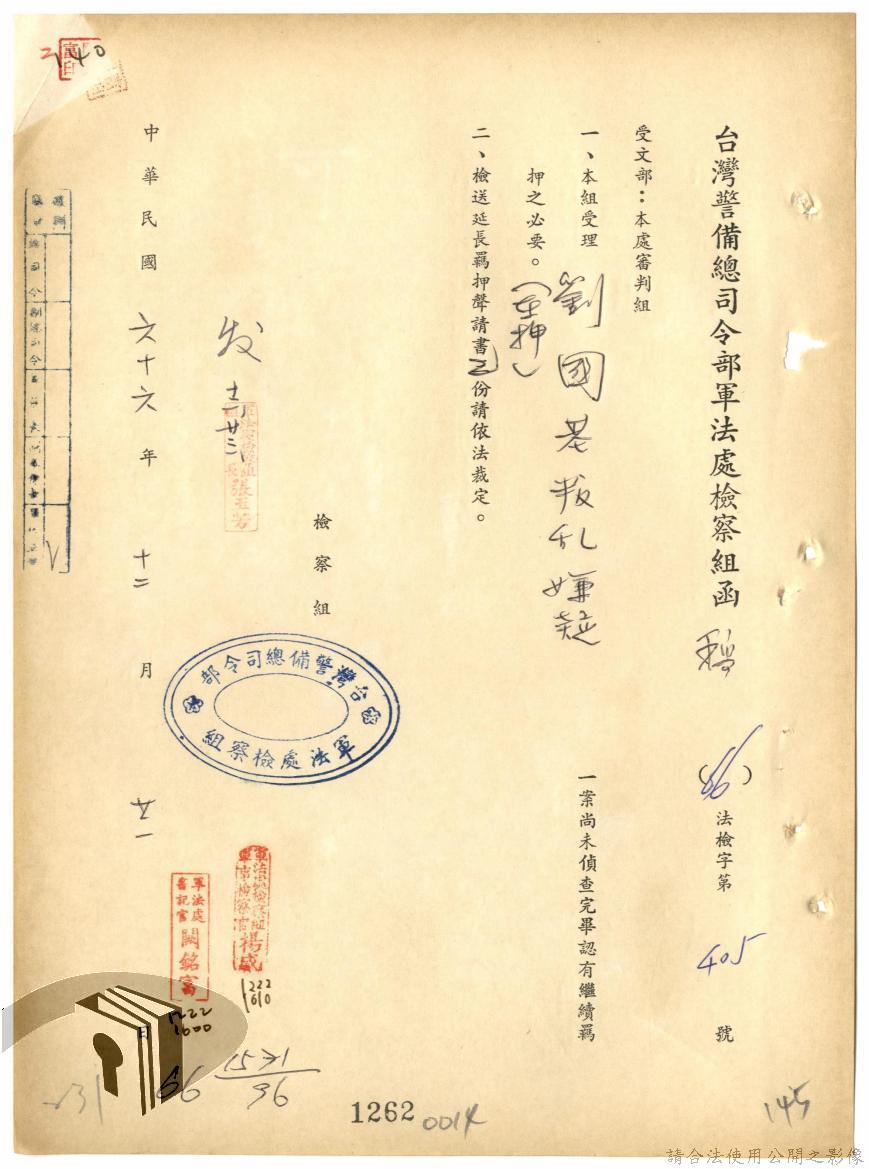 台灣警備總司令部軍法處檢察組函 稿
(66) 法檢字第 405 號
受文部：本處審判組
一、本組受理 劉國基叛乱嫌疑 一案尚未偵查完畢認有繼續羈
押之必要。(在押)
二、檢送延長羈押聲請書 份請依法裁定。
檢察組
发 十二 廿二
張玉芳
台灣警備總司令部
軍法處檢察組
軍法處檢察組
軍事檢察官 楊威
1222
1610
軍法處
書記官 闕銘富
1222
1600
中華民國 六十六年 十二月 日
1571
66 36
1262
0014
145
140
請合法使用公開之影像